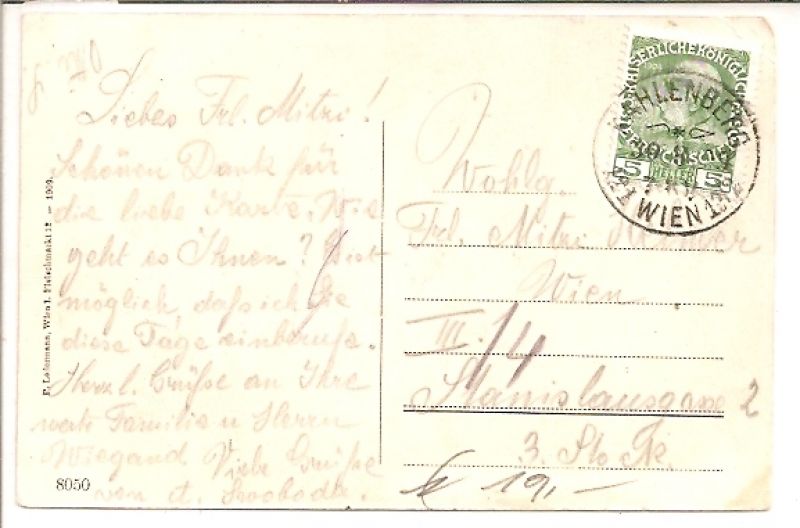 Liebes Frl. Mitzi!
Schönen Dank für
die liebe Karte. Wie
geht es Ihnen? Viel-
möglich, daß ich Sie
diese Tage einberufe.
Herzl. Grüße an Ihre
werte Familie u Herrn
Wiegand Viele Grüße
von
8050
F. Ledermann, Wien I. Fleischmarkt 12 — 1909.
KAISERLICHE KÖNIGLICHE
5 HELLER 5
KAHLENBERG
WIEN
Wohlg.
Frl. Mitzi
Wien
III./4
Stanislausgasse 2
3. Stock
19,-